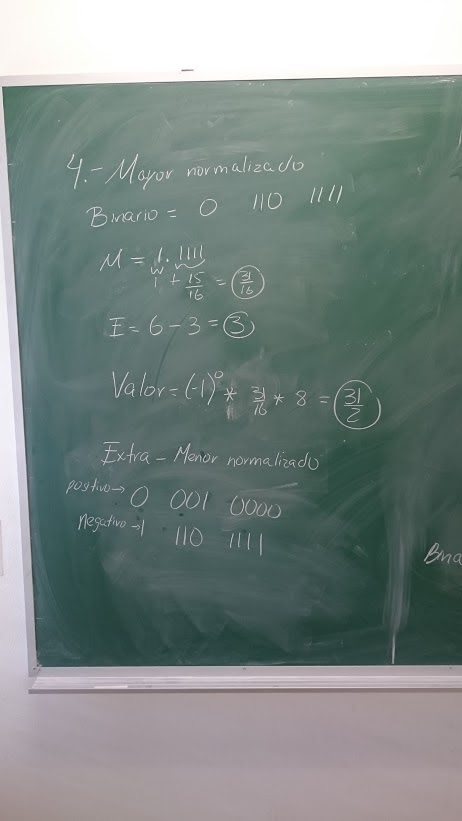 4.- Mayor normalizado
Binario = 0 110 1111
M = 1.1111
1 + 15/16 = 31/16
E = 6 - 3 = 3
Valor = (-1)^0 * 31/16 * 8 = 31/2
Extra - Menor normalizado
positivo → 0 001 0000
negativo → 1 110 1111
Bina